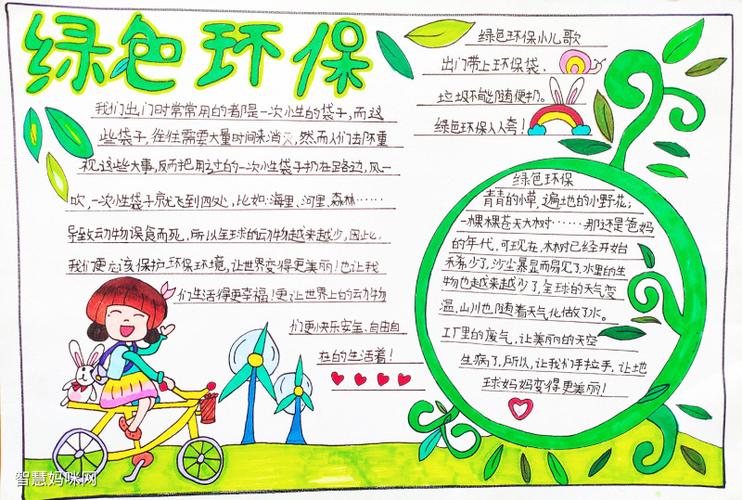 绿色环保
我们出门时常常用的都是一次性的袋子,而这
些袋子,往往需要大量时间来消灭,然而人们去不重
视这些大事,反而把用过的一次性袋子扔在路边,风一
吹,一次性袋子就飞到四处,比如:海里、河里、森林……
导致动物误食而死,所以全球的动物越来越少,因此,
我们更应该保护环保环境,让世界变得更美丽!也让我
们生活得更幸福!更让世界上的动物
们更快乐安全、自由自
在的生活着!
绿色环保小儿歌
出门带上环保袋、
垃圾不能随便扔。
绿色环保人人夸!
绿色环保
青青的小草,遍地的小野花;
一棵棵苍天大树……那还是爸妈
的年代,可现在,树木已经开始
稀少了,沙尘暴显而易见了,水里的生
物也越来越少了,全球的天气变
温,山川也随着天气化做了水。
工厂里的废气,让美丽的天空
生病了,所以,让我们手拉手,让地
球妈妈变得更美丽!
智慧妈咪网